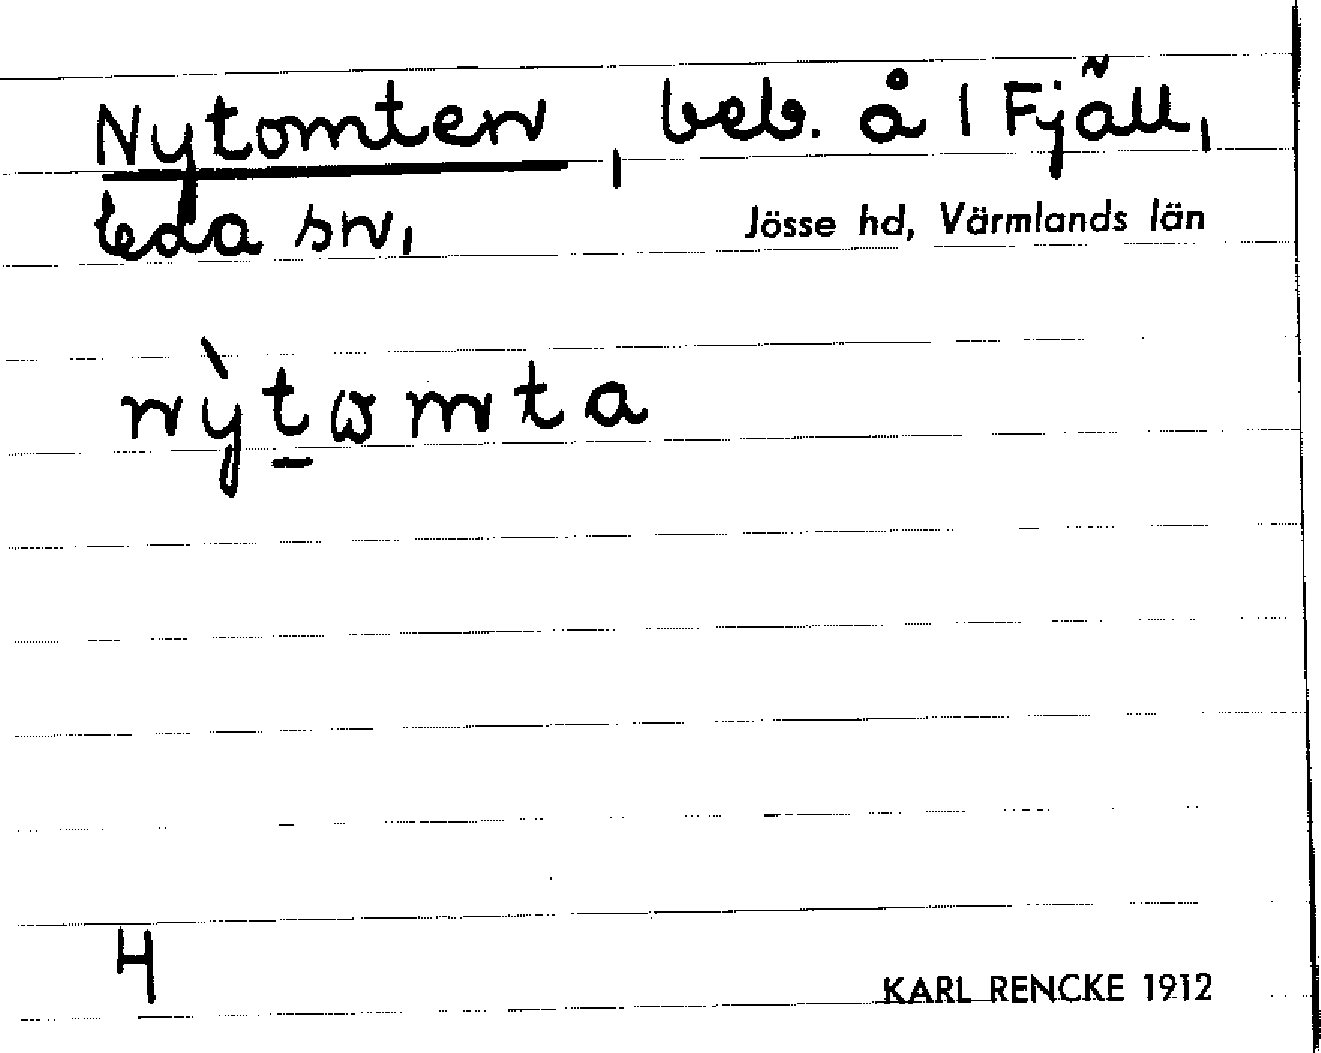 Nytomten, beb. å 1 Fjäll,
Eda sn,
Jösse hd, Värmlands län
nỳt̠ωmta
4
KARL RENCKE 1912